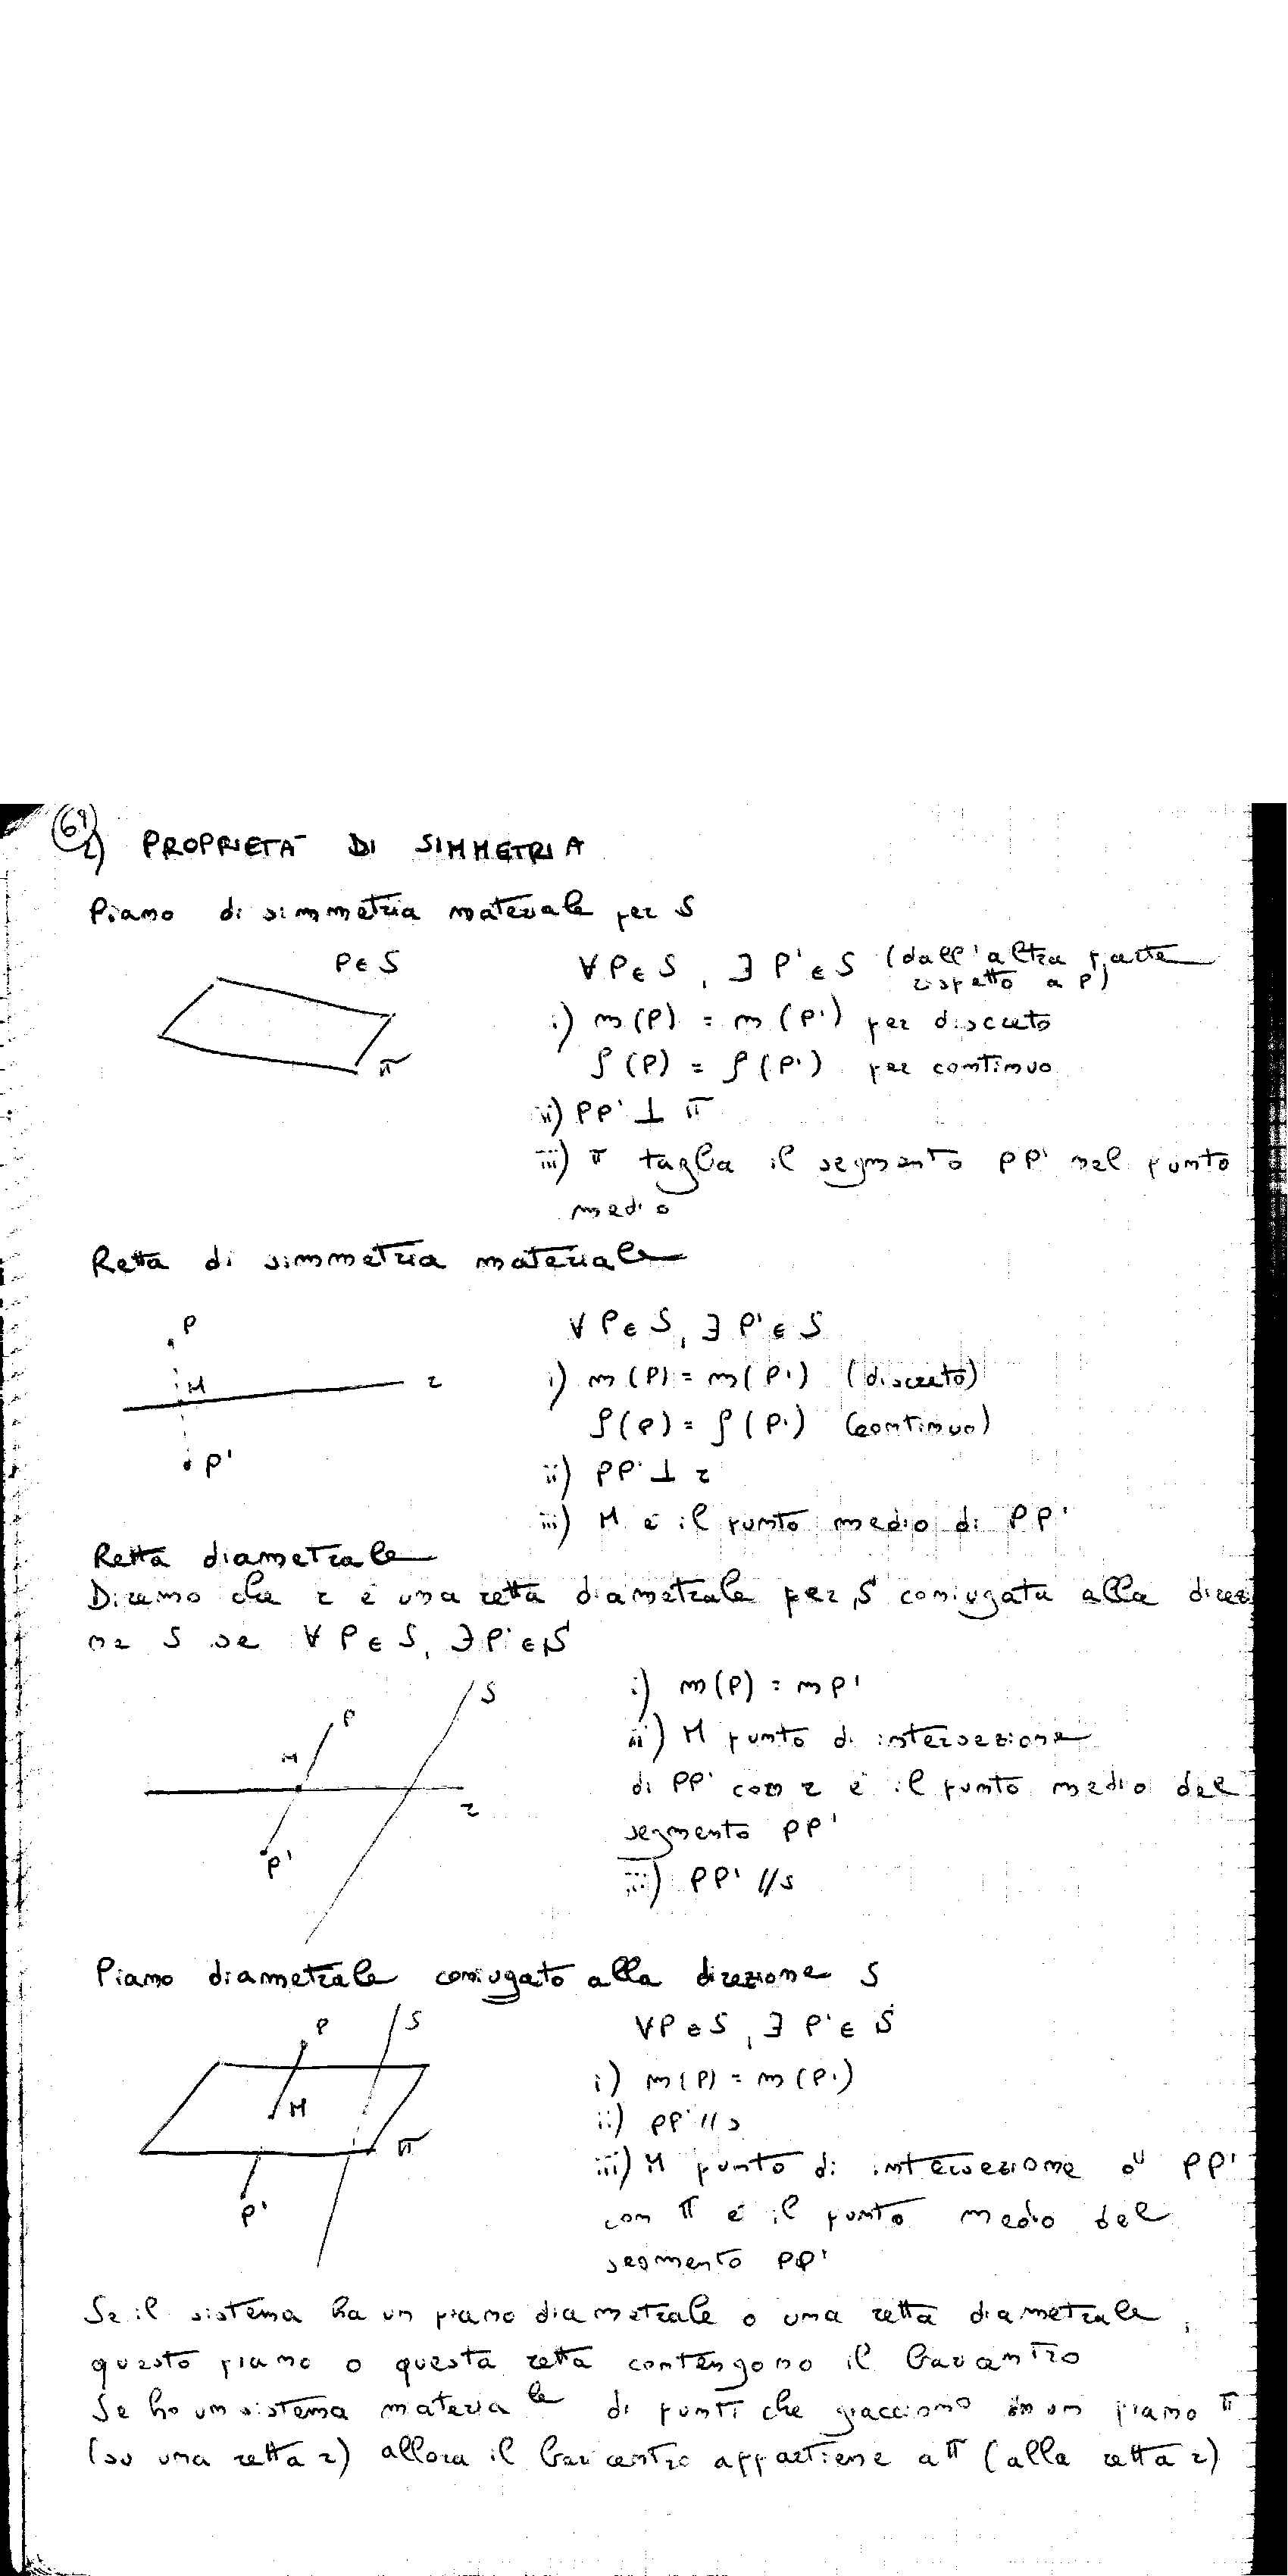 69
2) PROPRIETÀ DI SIMMETRIA
Piano di simmetria materiale per S
P∈S
π
∀P∈S, ∃P'∈S (dall'altra parte
rispetto a P)
i) m(P) = m(P') per discreto
ρ(P) = ρ(P') per continuo
ii) PP' ⊥ π
iii) π taglia il segmento PP' nel punto
medio
Retta di simmetria materiale
P
M
r
P'
∀P∈S, ∃P'∈S
i) m(P) = m(P') (discreto)
ρ(P) = ρ(P') (continuo)
ii) PP' ⊥ r
iii) M è il punto medio di PP'
Retta diametrale
Diremo che r è una retta diametrale per S coniugata alla direz
ne S se ∀P∈S, ∃P'∈S
P
S
M
r
P'
i) m(P) = mP'
ii) M punto di intersezione
di PP' con r è il punto medio del
segmento PP'
iii) PP' // s
Piano diametrale coniugato alla direzione S
P
S
M
π
P'
∀P∈S, ∃P'∈S
i) m(P) = m(P')
ii) PP' // s
iii) M punto di intersezione di PP'
con π è il punto medio del
segmento PP'
Se il sistema ha un piano diametrale o una retta diametrale,
questo piano o questa retta contengono il baricentro
Se ho un sistema materiale di punti che giacciono in un piano π
(su una retta r) allora il baricentro appartiene a π (alla retta r)